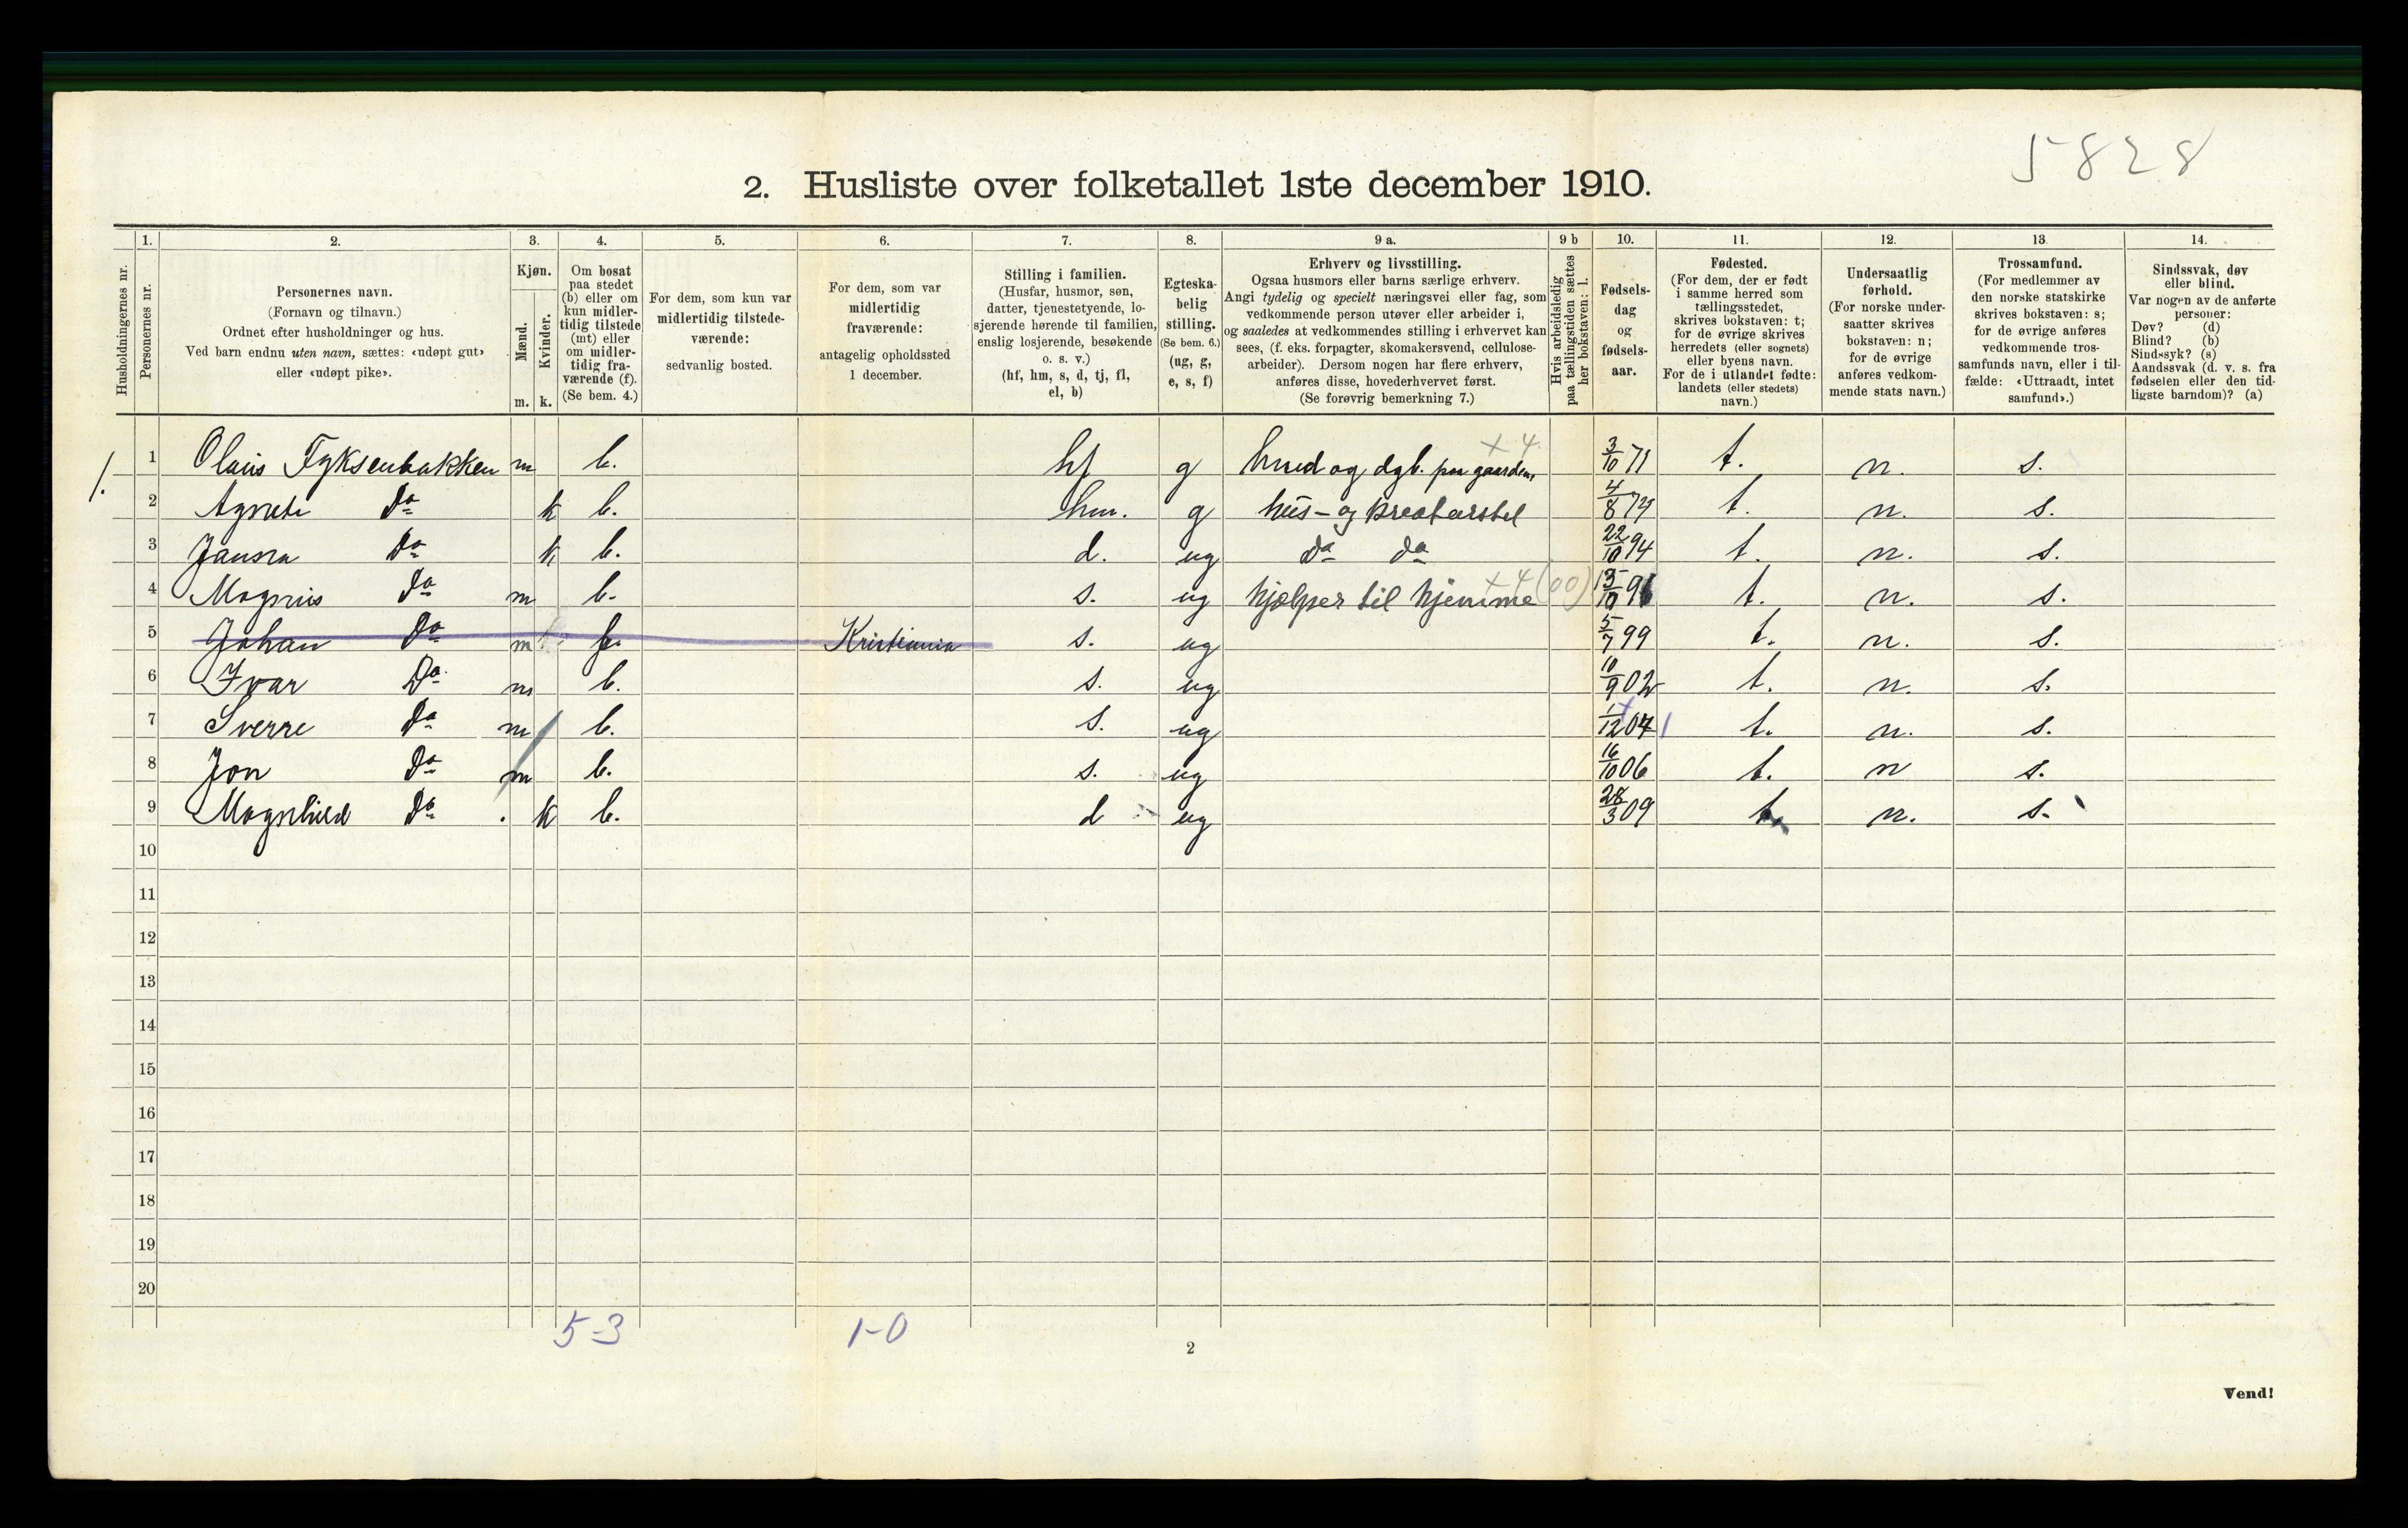 5828
2. Husliste over folketallet 1ste december 1910.
Husholdningernes nr.
1. Personernes nr.
2. Personernes navn. (Fornavn og tilnavn.) Ordnet efter husholdninger og hus. Ved barn endnu uten navn, sættes: «udøpt gut» eller «udøpt pike».
3. Kjøn. Mænd. m. Kvinder. k.
4. Om bosat paa stedet (b) eller om kun midlertidig tilstede (mt) eller om midlertidig fraværende (f). (Se bem. 4.)
5. For dem, som kun var midlertidig tilstedeværende: sedvanlig bosted.
6. For dem, som var midlertidig fraværende: antagelig opholdssted 1 december.
7. Stilling i familien. (Husfar, husmor, søn, datter, tjenestetyende, losjerende hørende til familien, enslig losjerende, besøkende o. s. v.) (hf, hm, s, d, tj, fl, el, b)
8. Egteskabelig stilling. (Se bem. 6.) (ug, g, e, s, f)
9 a. Erhverv og livsstilling. Ogsaa husmors eller barns særlige erhverv. Angi tydelig og specielt næringsvei eller fag, som vedkommende person utøver eller arbeider i, og saaledes at vedkommendes stilling i erhvervet kan sees, (f. eks. forpagter, skomakersvend, cellulosearbeider). Dersom nogen har flere erhverv, anføres disse, hovederhvervet først. (Se forøvrig bemerkning 7.)
9 b Hvis arbeidsledig paa tællingstiden sættes her bokstaven: l.
10. Fødselsdag og fødselsaar.
11. Fødested. (For dem, der er født i samme herred som tællingsstedet, skrives bokstaven: t; for de øvrige skrives herredets (eller sognets) eller byens navn. For de i utlandet fødte: landets (eller stedets) navn.)
12. Undersaatlig forhold. (For norske undersaatter skrives bokstaven: n; for de øvrige anføres vedkommende stats navn.)
13. Trossamfund. (For medlemmer av den norske statskirke skrives bokstaven: s; for de øvrige anføres vedkommende trossamfunds navn, eller i tilfælde: «Uttraadt, intet samfund».)
14. Sindssvak, døv eller blind. Var nogen av de anførte personer: Døv? (d) Blind? (b) Sindssyk? (s) Aandssvak (d. v. s. fra fødselen eller den tidligste barndom)? (a)
1. 1 Olaus Fyksenbakken m b. hf g hmd og dgb. paa gaarden +4 3/10 71 t. n. s.
2 Agnete Do k b. hm. g hus- og kreaturstel 4/8 74 t. n. s.
3 Do k b. d. ug do do 22/10 94 t. n. s.
4 Magnus Do m b. s. ug hjælper til hjemme +4 (00) 10 t. n. s.
5 Johan Do m f. Kristiania s. ug 5/7 99 t. n. s.
6 Ivar Do m b. s. ug 10/9 02 t. n. s.
7 Sverre Do m b. s. ug 1/12 04 t. n. s.
8 Jon Do m b. s. ug 16/10 06 t. n s.
9 Magnhild Do k b. d ug 28/3 09 t. n. s.
10
11
12
13
14
15
16
17
18
19
20
5-3 1-0
2
Vend!